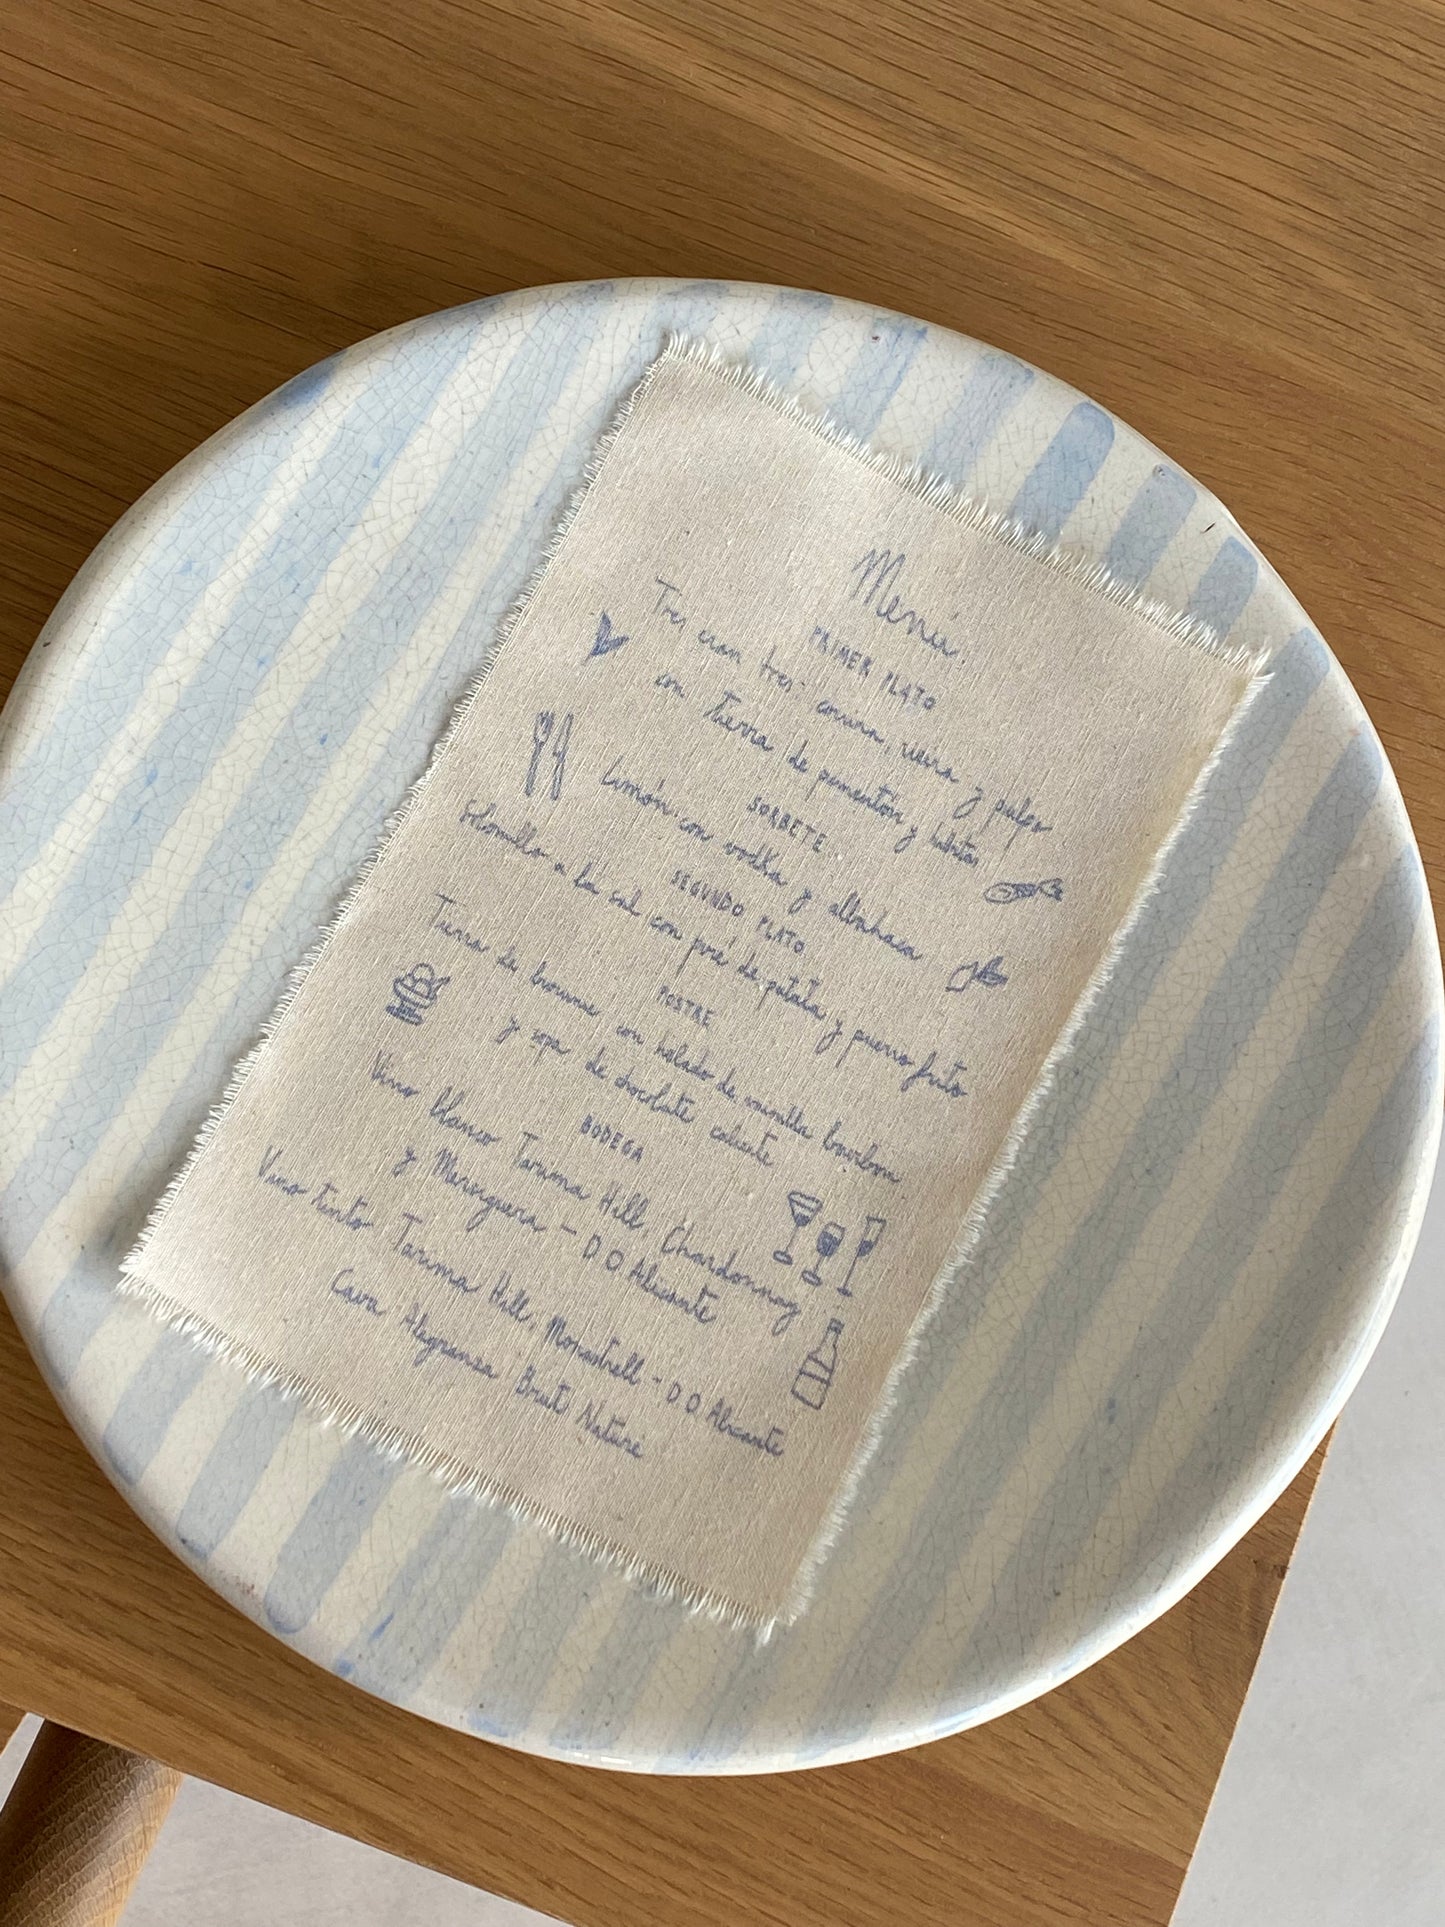 Menú
PRIMER PLATO
Tres eran tres: corvina, vieira y pulpo
con tierra de pimentón y habitas
SORBETE
Limón con vodka y albahaca
SEGUNDO PLATO
Solomillo a la sal con puré de patata y puerro frito
POSTRE
Tierra de brownie con helado de vainilla bourbon
y sopa de chocolate caliente
BODEGA
Vino blanco Tarima Hill, Chardonnay
y Merseguera - D O Alicante
Vino tinto Tarima Hill, Monastrell - D O Alicante
Cava Alegranza Brut Nature